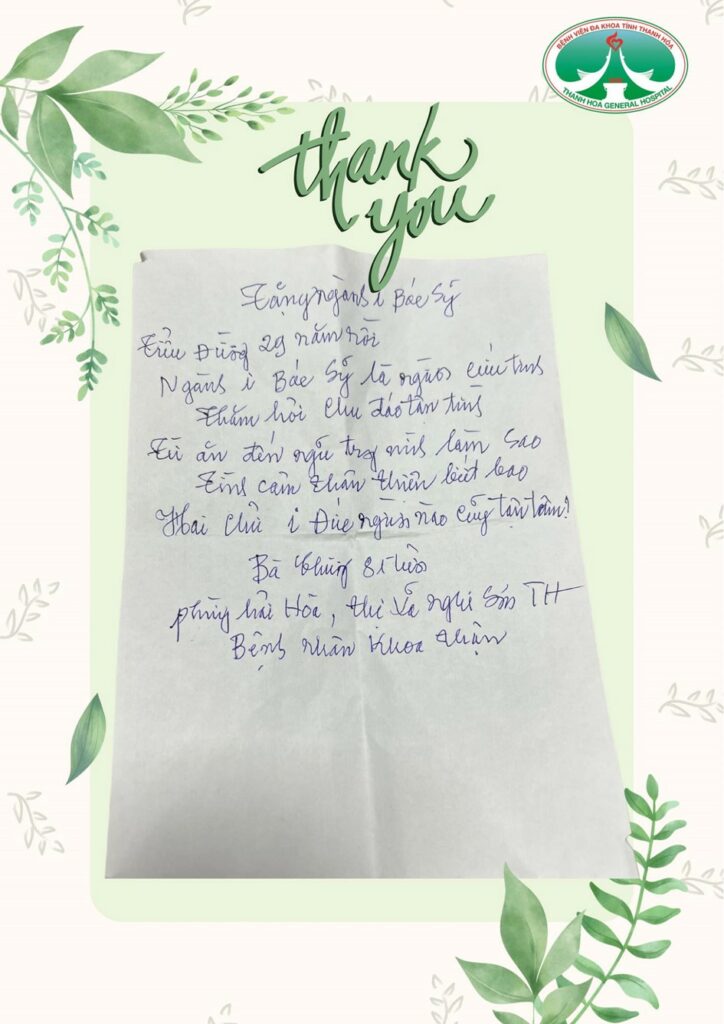 BỆNH VIỆN ĐA KHOA TỈNH THANH HÓA
THANH HOA GENERAL HOSPITAL
thank
you
Tặng ngành i Bác Sỹ
Tiểu Đường 29 năm rồi
Ngành i Bác Sỹ là người cứu tinh
Thăm hỏi Chu đáo tận tình
Từ ăn đến ngủ trọng mình làm sao
Tình cảm thân thiện biết bao
Hai chữ i Đức người nào cũng tận tâm?
Bà Chung 81 tuổi
phường hải Hòa, thị Xã nghi Sơn TH
Bệnh nhân Khoa thận